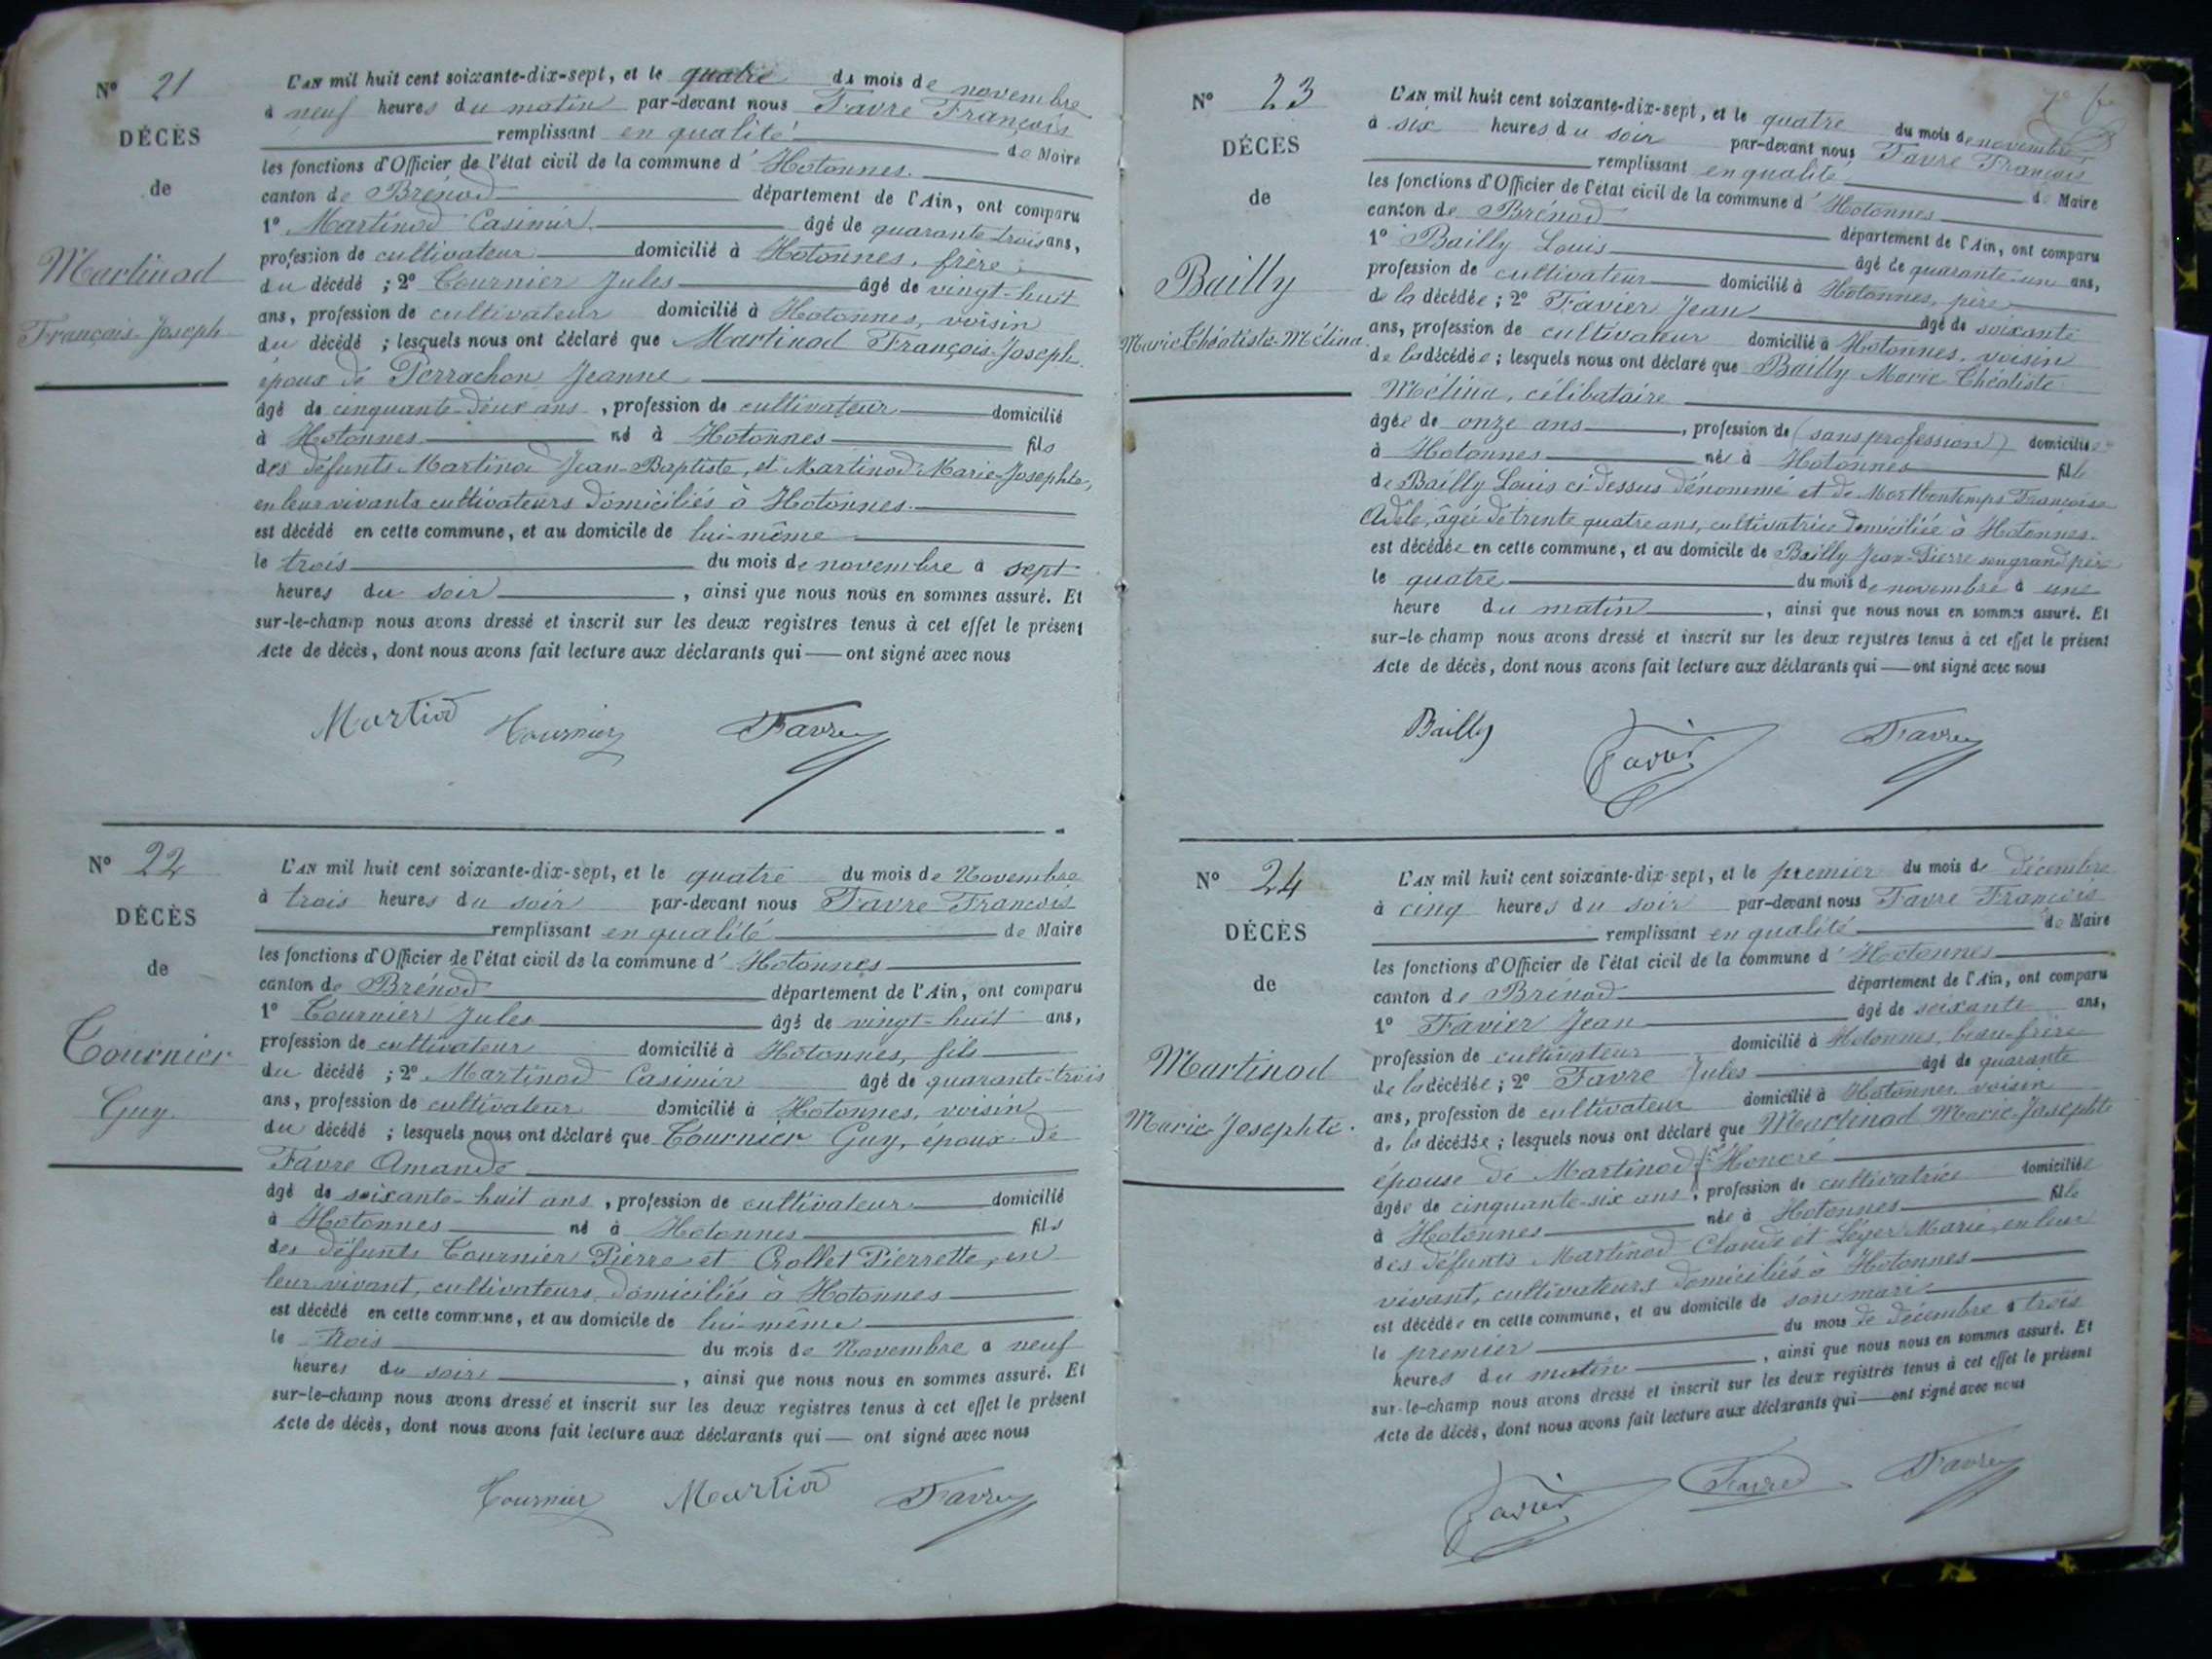 N° 21
DÉCÈS
de
Martinod
François-Joseph
L'AN mil huit cent soixante-dix-sept, et le quatre du mois de novembre
à neuf heures du matin par-devant nous Favre François
remplissant en qualité de Maire
les fonctions d'Officier de l'état civil de la commune d'Hotonnes.
canton de Brénod département de l'Ain, ont comparu
1° Martinod Casimir âgé de quarante trois ans,
profession de cultivateur domicilié à Hotonnes, frère
du décédé ; 2° Tournier Jules âgé de vingt-huit
ans, profession de cultivateur domicilié à Hotonnes, voisin
du décédé ; lesquels nous ont déclaré que Martinod François-Joseph
époux de Perrachon Jeanne
âgé de cinquante-deux ans, profession de cultivateur domicilié
à Hotonnes né à Hotonnes fils
des défunts Martinod Jean-Baptiste, et Martinod Marie-Josephte,
en leur vivants cultivateurs domiciliés à Hotonnes.
est décédé en cette commune, et au domicile de lui-même
le trois du mois de novembre à sept
heures du soir, ainsi que nous nous en sommes assuré. Et
sur-le-champ nous avons dressé et inscrit sur les deux registres tenus à cet effet le présent
Acte de décès, dont nous avons fait lecture aux déclarants qui — ont signé avec nous
Martinod Tournier Favre
N° 22
DÉCÈS
de
Tournier
Guy.
L'AN mil huit cent soixante-dix-sept, et le quatre du mois de Novembre
à trois heures du soir par-devant nous Favre François
remplissant en qualité de Maire
les fonctions d'Officier de l'état civil de la commune d'Hotonnes
canton de Brénod département de l'Ain, ont comparu
1° Tournier Jules âgé de vingt-huit ans,
profession de cultivateur domicilié à Hotonnes, fils
du décédé ; 2° Martinod Casimir âgé de quarante-trois
ans, profession de cultivateur domicilié à Hotonnes, voisin
du décédé ; lesquels nous ont déclaré que Tournier Guy, époux de
Favre Amande
âgé de soixante-huit ans, profession de cultivateur domicilié
à Hotonnes né à Hotonnes fils
des défunts Tournier Pierre et Crollet Pierrette, en
leur vivant, cultivateurs, domiciliés à Hotonnes
est décédé en cette commune, et au domicile de lui-même
le trois du mois de Novembre à neuf
heures du soir, ainsi que nous nous en sommes assuré. Et
sur-le-champ nous avons dressé et inscrit sur les deux registres tenus à cet effet le présent
Acte de décès, dont nous avons fait lecture aux déclarants qui — ont signé avec nous
Tournier Martinod Favre
N° 23
DÉCÈS
de
Bailly
Marie-Théotiste-Mélina
L'AN mil huit cent soixante-dix-sept, et le quatre du mois de novembre
à six heures du soir par-devant nous Favre François
remplissant en qualité de Maire
les fonctions d'Officier de l'état civil de la commune d'Hotonnes
canton de Brénod département de l'Ain, ont comparu
1° Bailly Louis âgé de quarante-un ans,
profession de cultivateur domicilié à Hotonnes, père
de la décédée ; 2° Favier Jean âgé de soixante
ans, profession de cultivateur domicilié à Hotonnes, voisin
de la décédée ; lesquels nous ont déclaré que Bailly Marie-Théotiste
Mélina, célibataire
âgée de onze ans, profession de (sans profession) domiciliée
à Hotonnes née à Hotonnes fille
de Bailly Louis ci-dessus dénommé et de Montbontemps Françoise
Adèle, âgée de trente quatre ans, cultivatrice domiciliée à Hotonnes.
est décédée en cette commune, et au domicile de Bailly Jean-Pierre son grand père
le quatre du mois de novembre à une
heure du matin, ainsi que nous nous en sommes assuré. Et
sur-le-champ nous avons dressé et inscrit sur les deux registres tenus à cet effet le présent
Acte de décès, dont nous avons fait lecture aux déclarants qui — ont signé avec nous
Bailly Favier Favre
N° 24
DÉCÈS
de
Martinod
Marie-Josephte.
L'AN mil huit cent soixante-dix-sept, et le premier du mois de décembre
à cinq heures du soir par-devant nous Favre François
remplissant en qualité de Maire
les fonctions d'Officier de l'état civil de la commune d'Hotonnes
canton de Brénod département de l'Ain, ont comparu
1° Favier Jean âgé de soixante ans,
profession de cultivateur domicilié à Hotonnes, beau-frère
de la décédée ; 2° Favre Jules âgé de quarante
ans, profession de cultivateur domicilié à Hotonnes, voisin
de la décédée ; lesquels nous ont déclaré que Martinod Marie-Josephte
épouse de Martinod Honoré
âgée de cinquante-six ans, profession de cultivatrice domiciliée
à Hotonnes née à Hotonnes fille
des défunts Martinod Claude et Léger Marie, en leur
vivant, cultivateurs domiciliés à Hotonnes
est décédée en cette commune, et au domicile de son mari
le premier du mois de décembre à trois
heures du matin, ainsi que nous nous en sommes assuré. Et
sur-le-champ nous avons dressé et inscrit sur les deux registres tenus à cet effet le présent
Acte de décès, dont nous avons fait lecture aux déclarants qui — ont signé avec nous
Favier Favre Favre